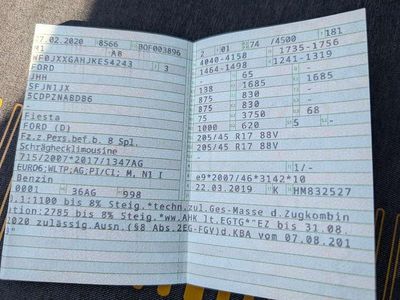 27.02.2020 8566 BOF003896
M1 AB
WF0JXXGAHJKES4243 3
FORD
JHH
SFJN1JX
5CDPZNABD86
-
Fiesta
FORD (D)
Fz.z.Pers.bef.b. 8 Spl.
Schräghecklimousine
715/2007*2017/1347AG
EURO6;WLTP;AG;PI/CI; M, N1 I
Benzin
0001 36AG 998
2 01 74 /4500 181
4040-4150 1735-1756
1464-1498 1241-1319
- 65 - -
138 1685 1685
875 830 -
875 830 -
75 3750 68
1000 620 5 -
205/45 R17 88V
205/45 R17 88V
-
- 1/-
e9*2007/46*3142*10
22.03.2019 K HM832527
.1:1100 bis 8% Steig.*techn.zul.Ges-Masse d.Zugkombin
ation:2785 bis 8% Steig.*ww.AHK lt.EGTG*^EZ bis 31.08.
2020 zulässig.Ausn.(§8 Abs.2EG-FGV)d.KBA vom 07.08.201